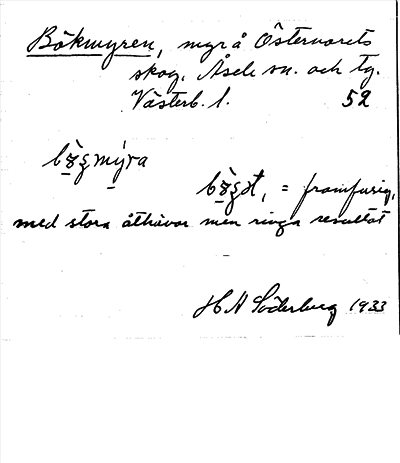 Bökmyren, myr å Östernorets
skog, Åsele sn. och tg.
Västerb. l. 52
bö̱ǥmýra
bö̱ǥǝt, = framfusig,
med stora åthävor men ringa resultat
H A Söderberg 1933